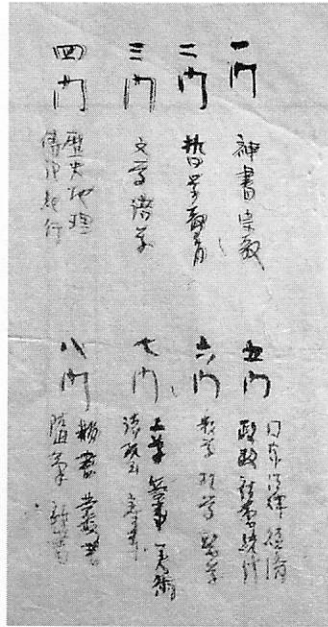 一門
神書宗教
二門
哲学教育
三門
文学語学
四門
歴史地理
傳記紀行
五門
国家法律経済
財政社會統計
六門
数学理学医学
七門
工学兵事美術
八門
類書叢書
随筆雑書